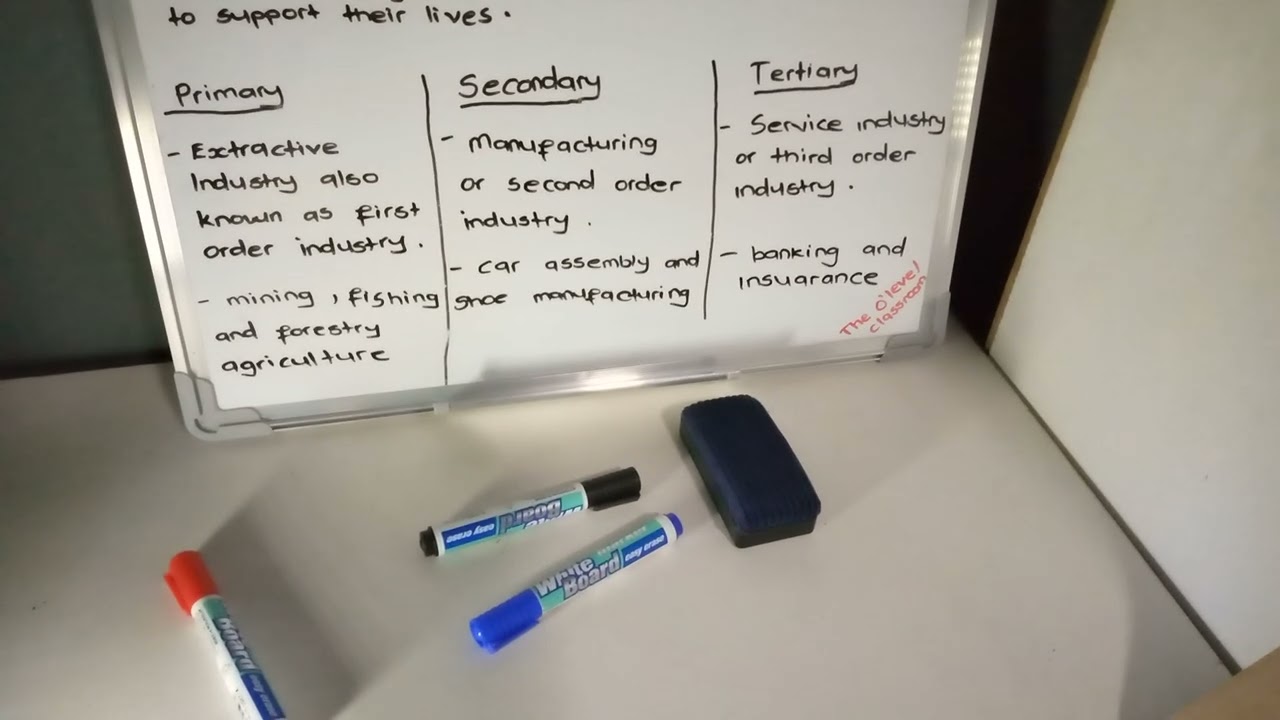 to support their lives.
Primary
- Extractive
Industry also
known as first
order industry.
- mining, fishing
and forestry
agriculture
Secondary
- Manufacturing
or second order
industry.
- car assembly and
shoe manufacturing
Tertiary
- Service industry
or third order
industry.
- banking and
insuarance
The O'level
classroom
easy erase
White
Board
easy erase
Board